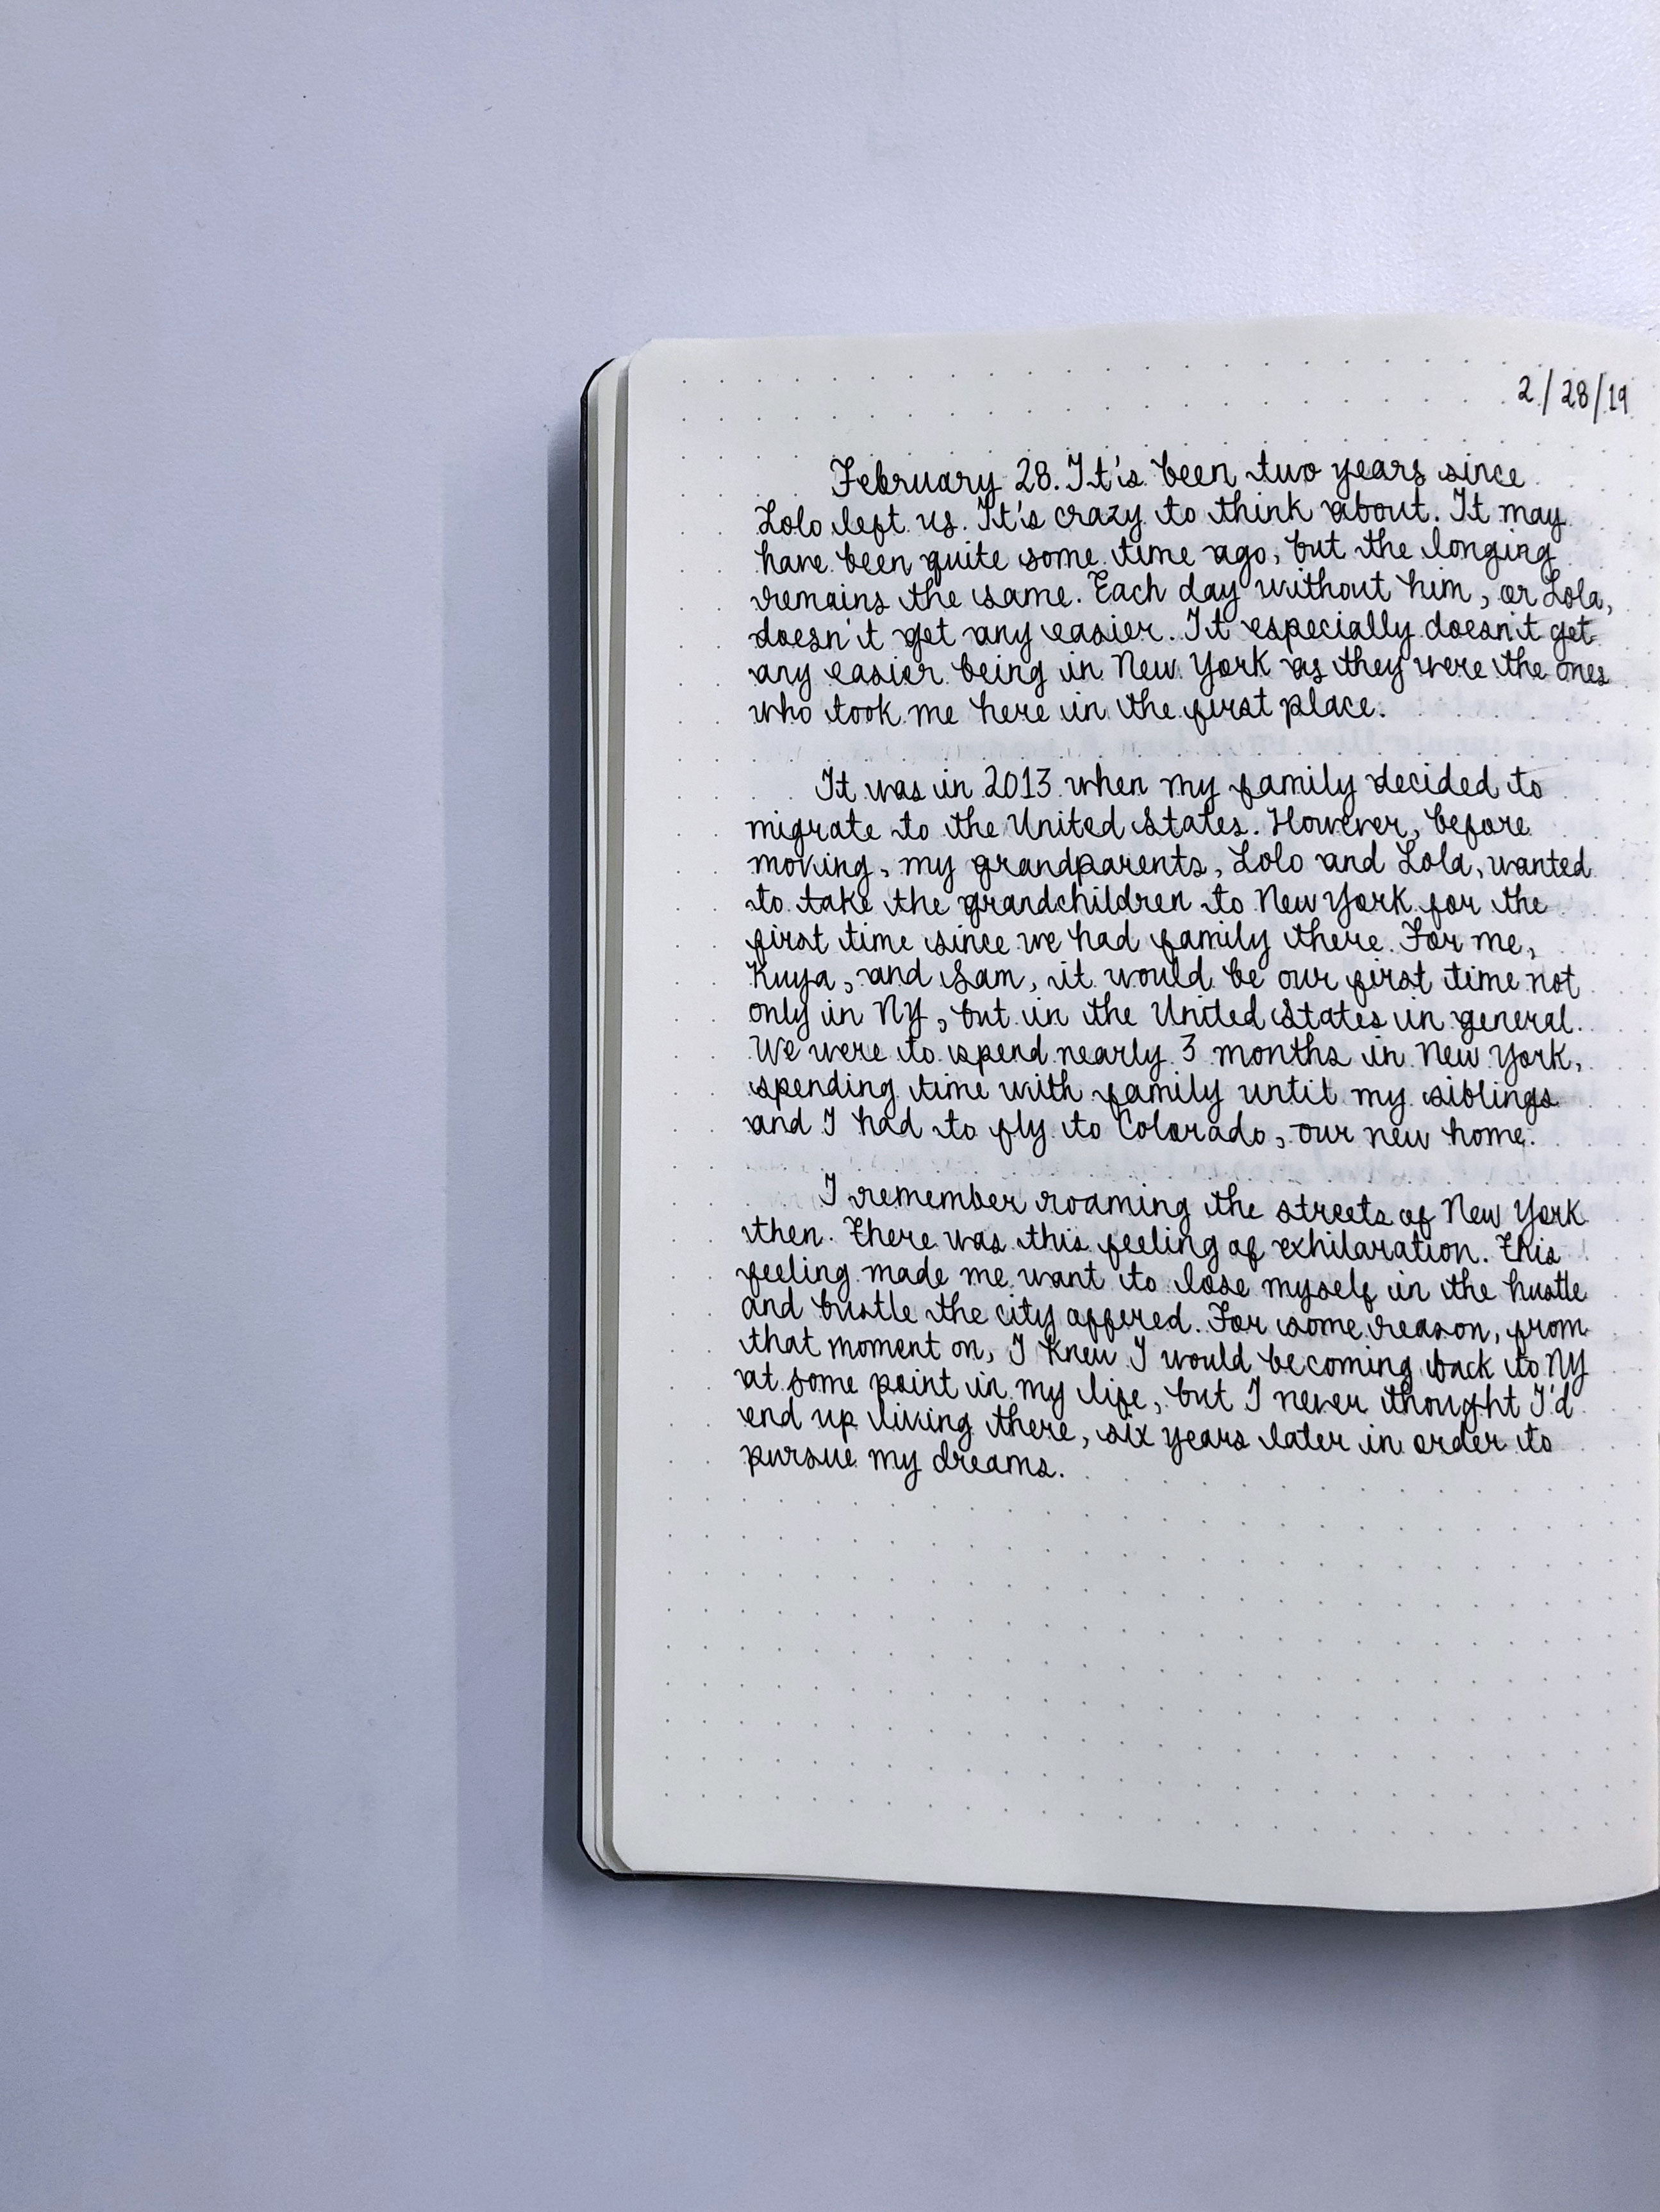 2/28/19
February 28. It's been two years since
Lolo left us. It's crazy to think about. It may
have been quite some time ago, but the longing
remains the same. Each day without him, or Lola,
doesn't get any easier. It especially doesn't get
any easier being in New York as they were the ones
who took me here in the first place.
It was in 2013 when my family decided to
migrate to the United States. However, before
moving, my grandparents, Lolo and Lola, wanted
to take the grandchildren to New York for the
first time since we had family there. For me,
Kuya, and Sam, it would be our first time not
only in NY, but in the United States in general.
We were to spend nearly 3 months in New York,
spending time with family until my siblings
and I had to fly to Colorado, our new home.
I remember roaming the streets of New York
then. There was this feeling of exhilaration. This
feeling made me want to lose myself in the hustle
and bustle the city offered. For some reason, from
that moment on, I knew I would be coming back to NY
at some point in my life, but I never thought I'd
end up living there, six years later in order to
pursue my dreams.